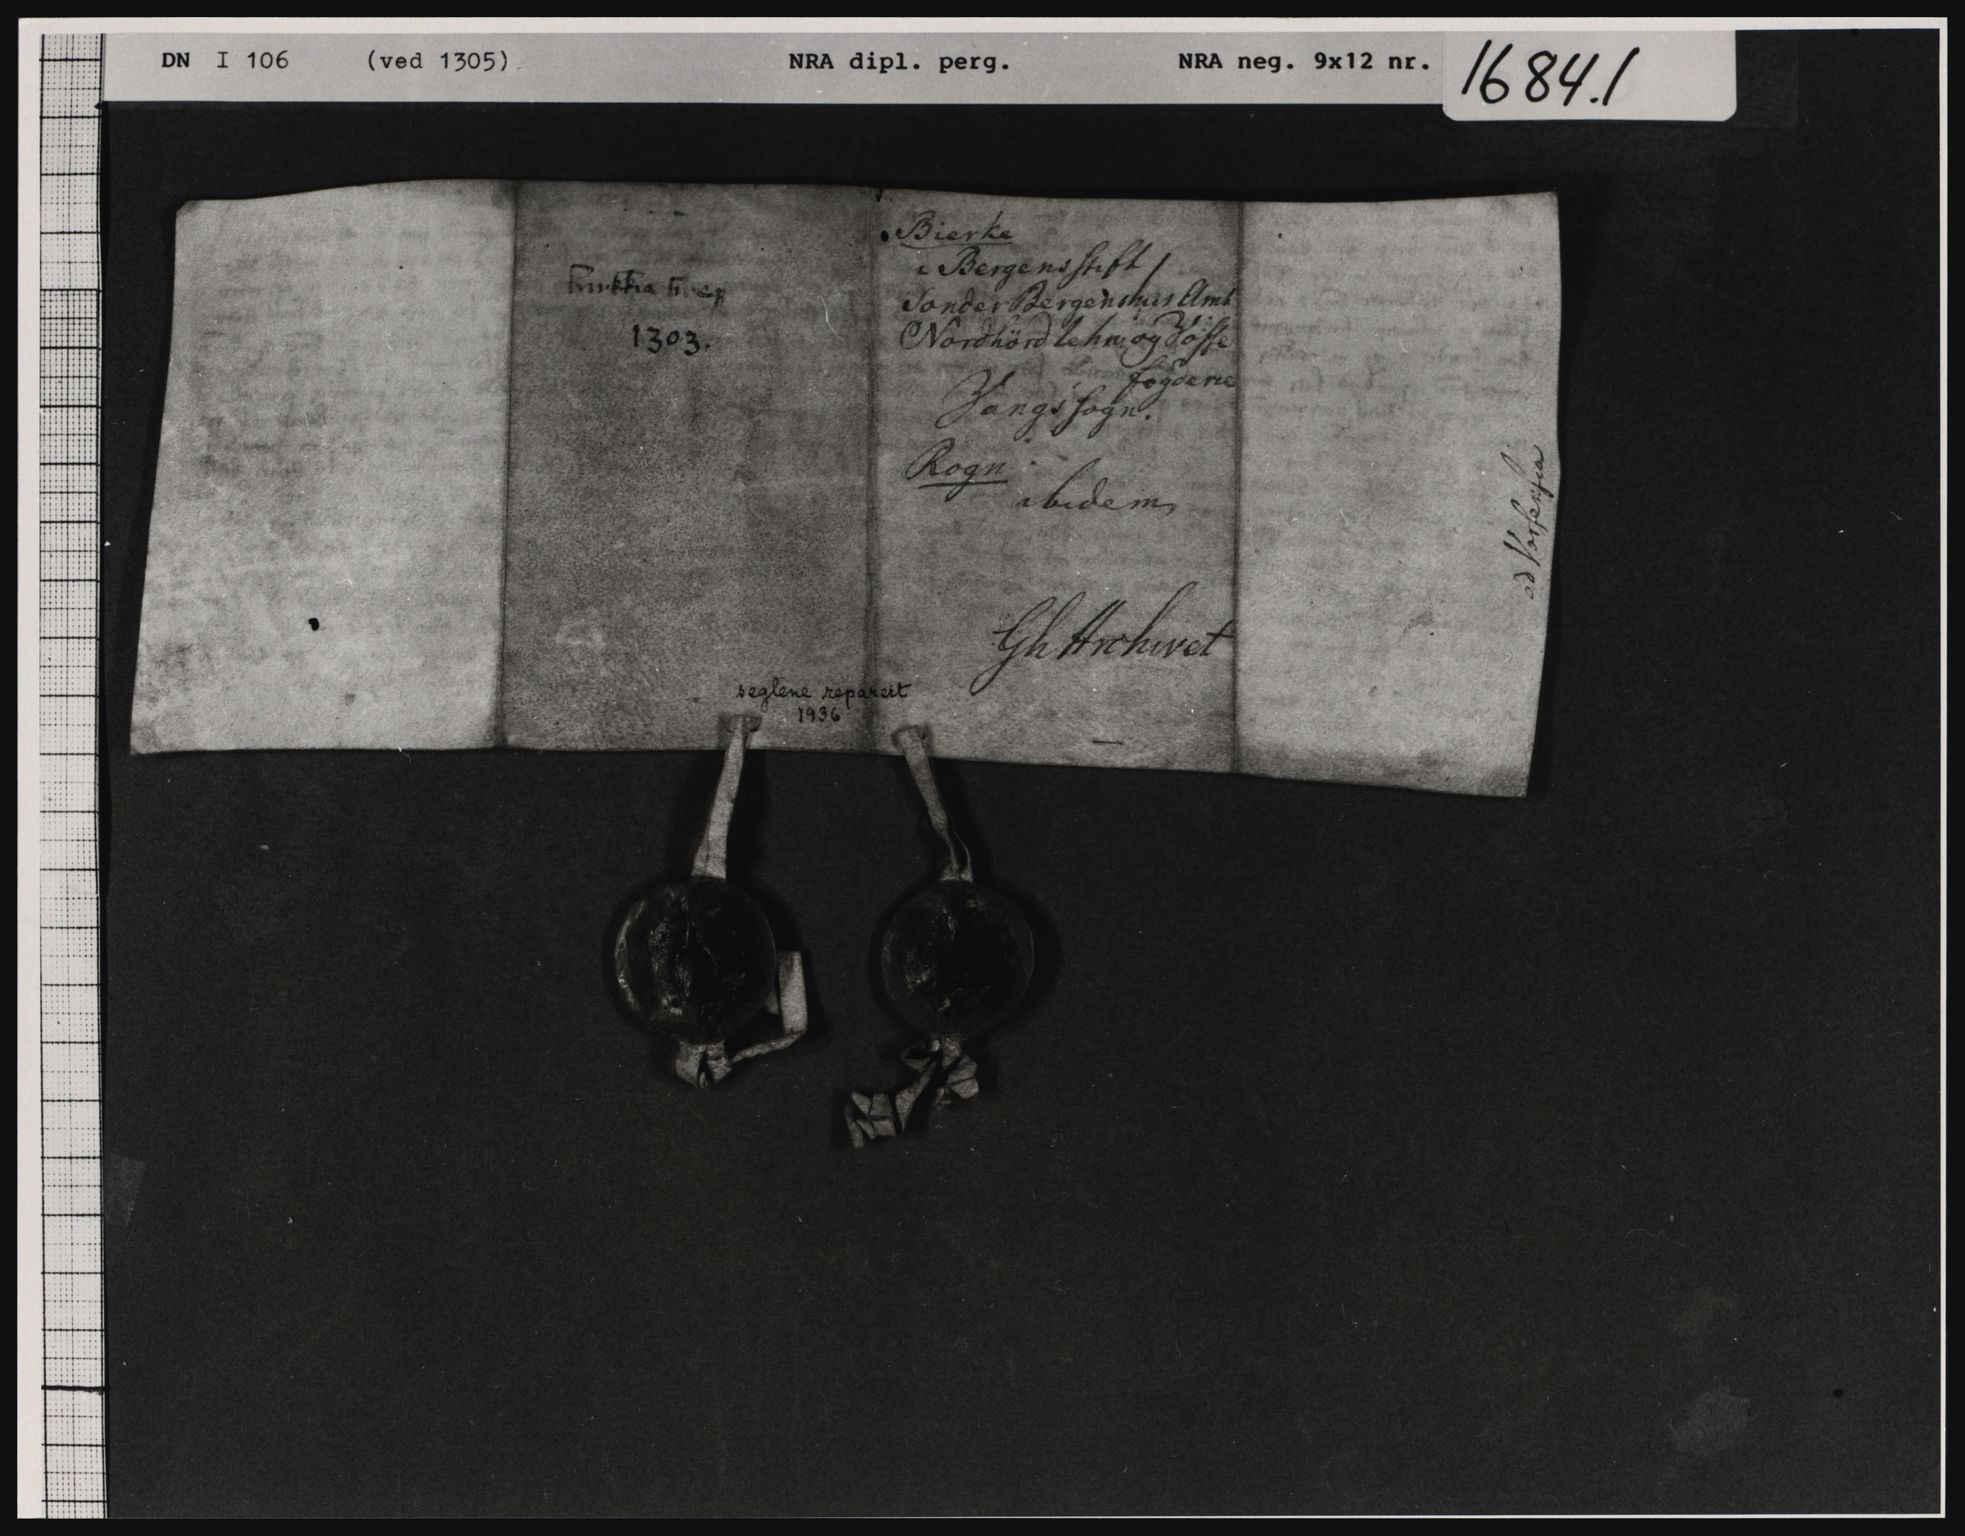 DN I 106 (ved 1305) NRA dipl. perg. NRA neg. 9x12 nr. 1684.1
1303.
Bierke
i Bergens Stift
Sønder Bergenshus Amt
Nordhörd Lehn og Vosse
fogderie
Vangs Sogn.
Rogn
ibidem
Gh Archivet
seglene reparert
1936
ad Vossensia